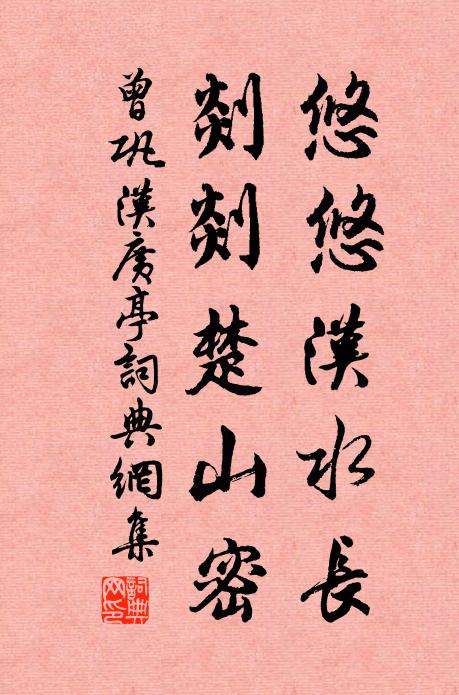 悠悠漢水長
剡剡楚山密
曾巩漢广亭詞典網集
詞典网印